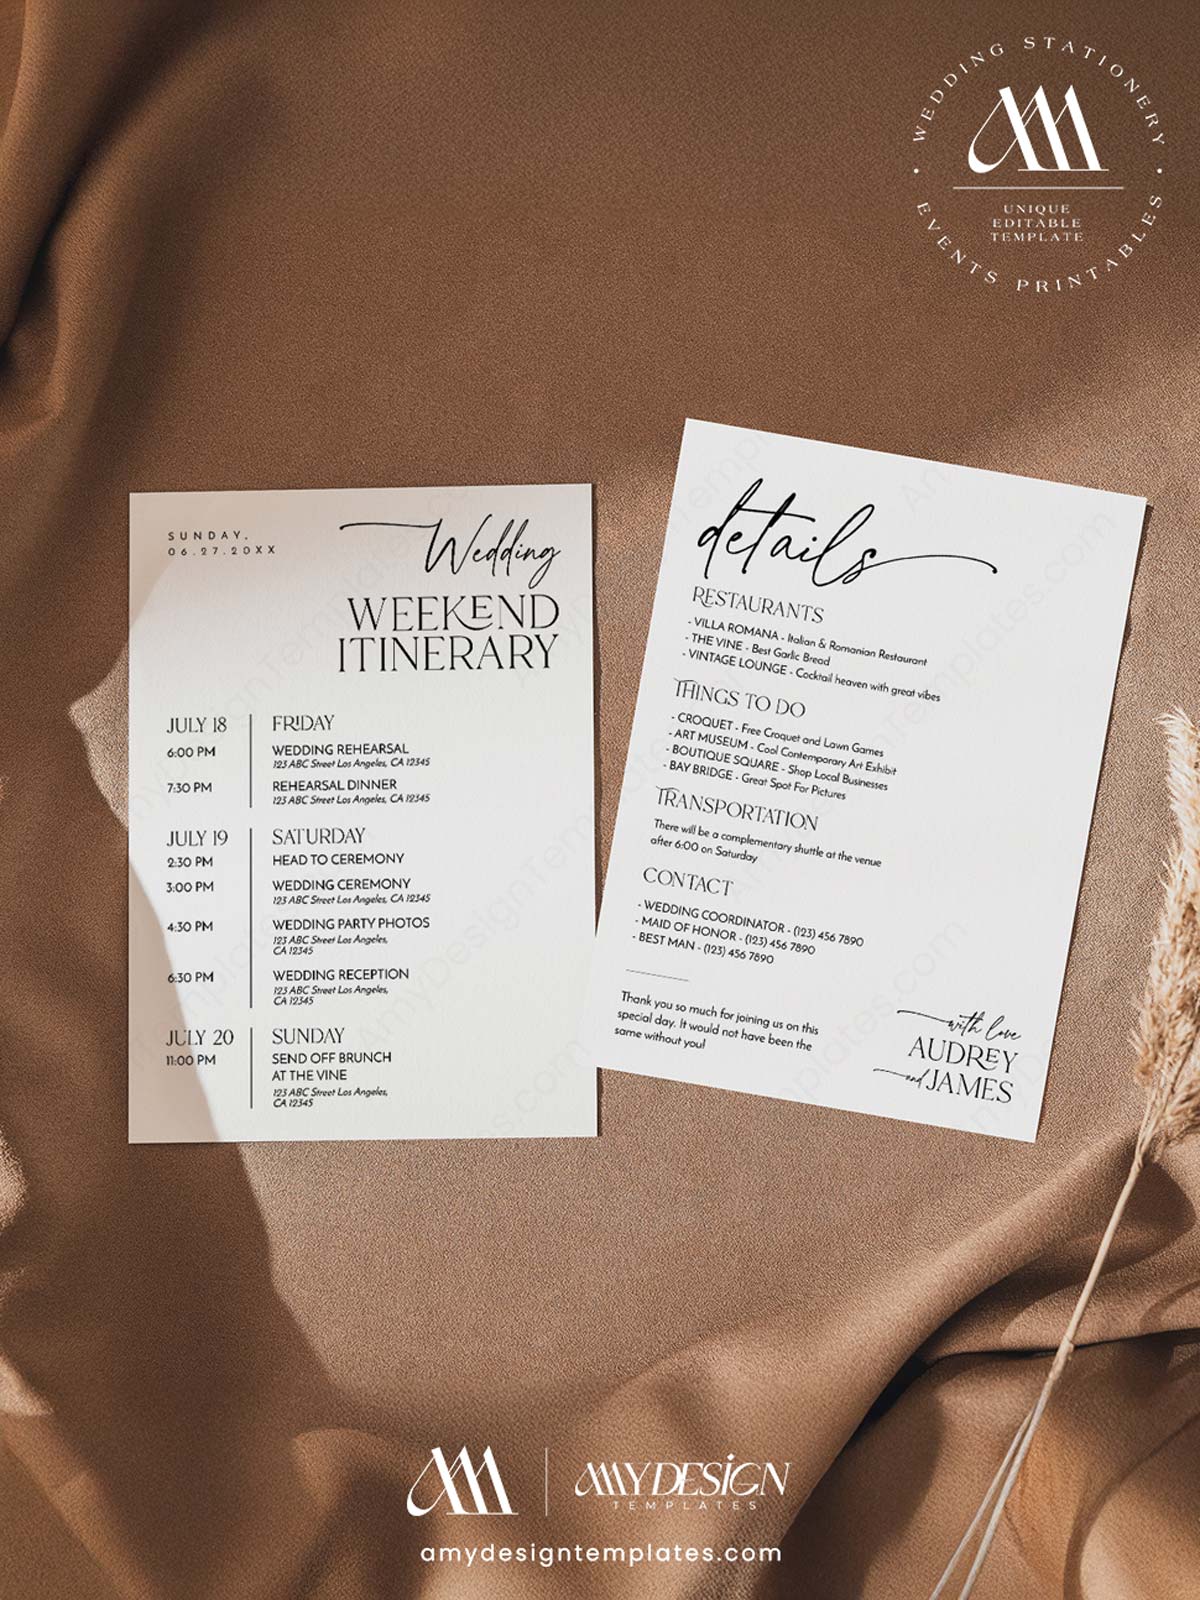 WEDDING STATIONERY
UNIQUE
EDITABLE
TEMPLATE
EVENTS PRINTABLES
SUNDAY,
06.27.20XX
Wedding
WEEKEND
ITINERARY
JULY 18 FRIDAY
6:00 PM WEDDING REHEARSAL
123 ABC Street Los Angeles, CA 12345
7:30 PM REHEARSAL DINNER
123 ABC Street Los Angeles, CA 12345
JULY 19 SATURDAY
2:30 PM HEAD TO CEREMONY
3:00 PM WEDDING CEREMONY
123 ABC Street Los Angeles, CA 12345
4:30 PM WEDDING PARTY PHOTOS
123 ABC Street Los Angeles,
CA 12345
6:30 PM WEDDING RECEPTION
123 ABC Street Los Angeles,
CA 12345
JULY 20 SUNDAY
11:00 PM SEND OFF BRUNCH
AT THE VINE
123 ABC Street Los Angeles,
CA 12345
details
RESTAURANTS
- VILLA ROMANA - Italian & Romanian Restaurant
- THE VINE - Best Garlic Bread
- VINTAGE LOUNGE - Cocktail heaven with great vibes
THINGS TO DO
- CROQUET - Free Croquet and Lawn Games
- ART MUSEUM - Cool Contemporary Art Exhibit
- BOUTIQUE SQUARE - Shop Local Businesses
- BAY BRIDGE - Great Spot For Pictures
TRANSPORTATION
There will be a complementary shuttle at the venue
after 6:00 on Saturday
CONTACT
- WEDDING COORDINATOR - (123) 456 7890
- MAID OF HONOR - (123) 456 7890
- BEST MAN - (123) 456 7890
Thank you so much for joining us on this
special day. It would not have been the
same without you!
with love
AUDREY
and JAMES
AMY DESIGN
TEMPLATES
amydesigntemplates.com